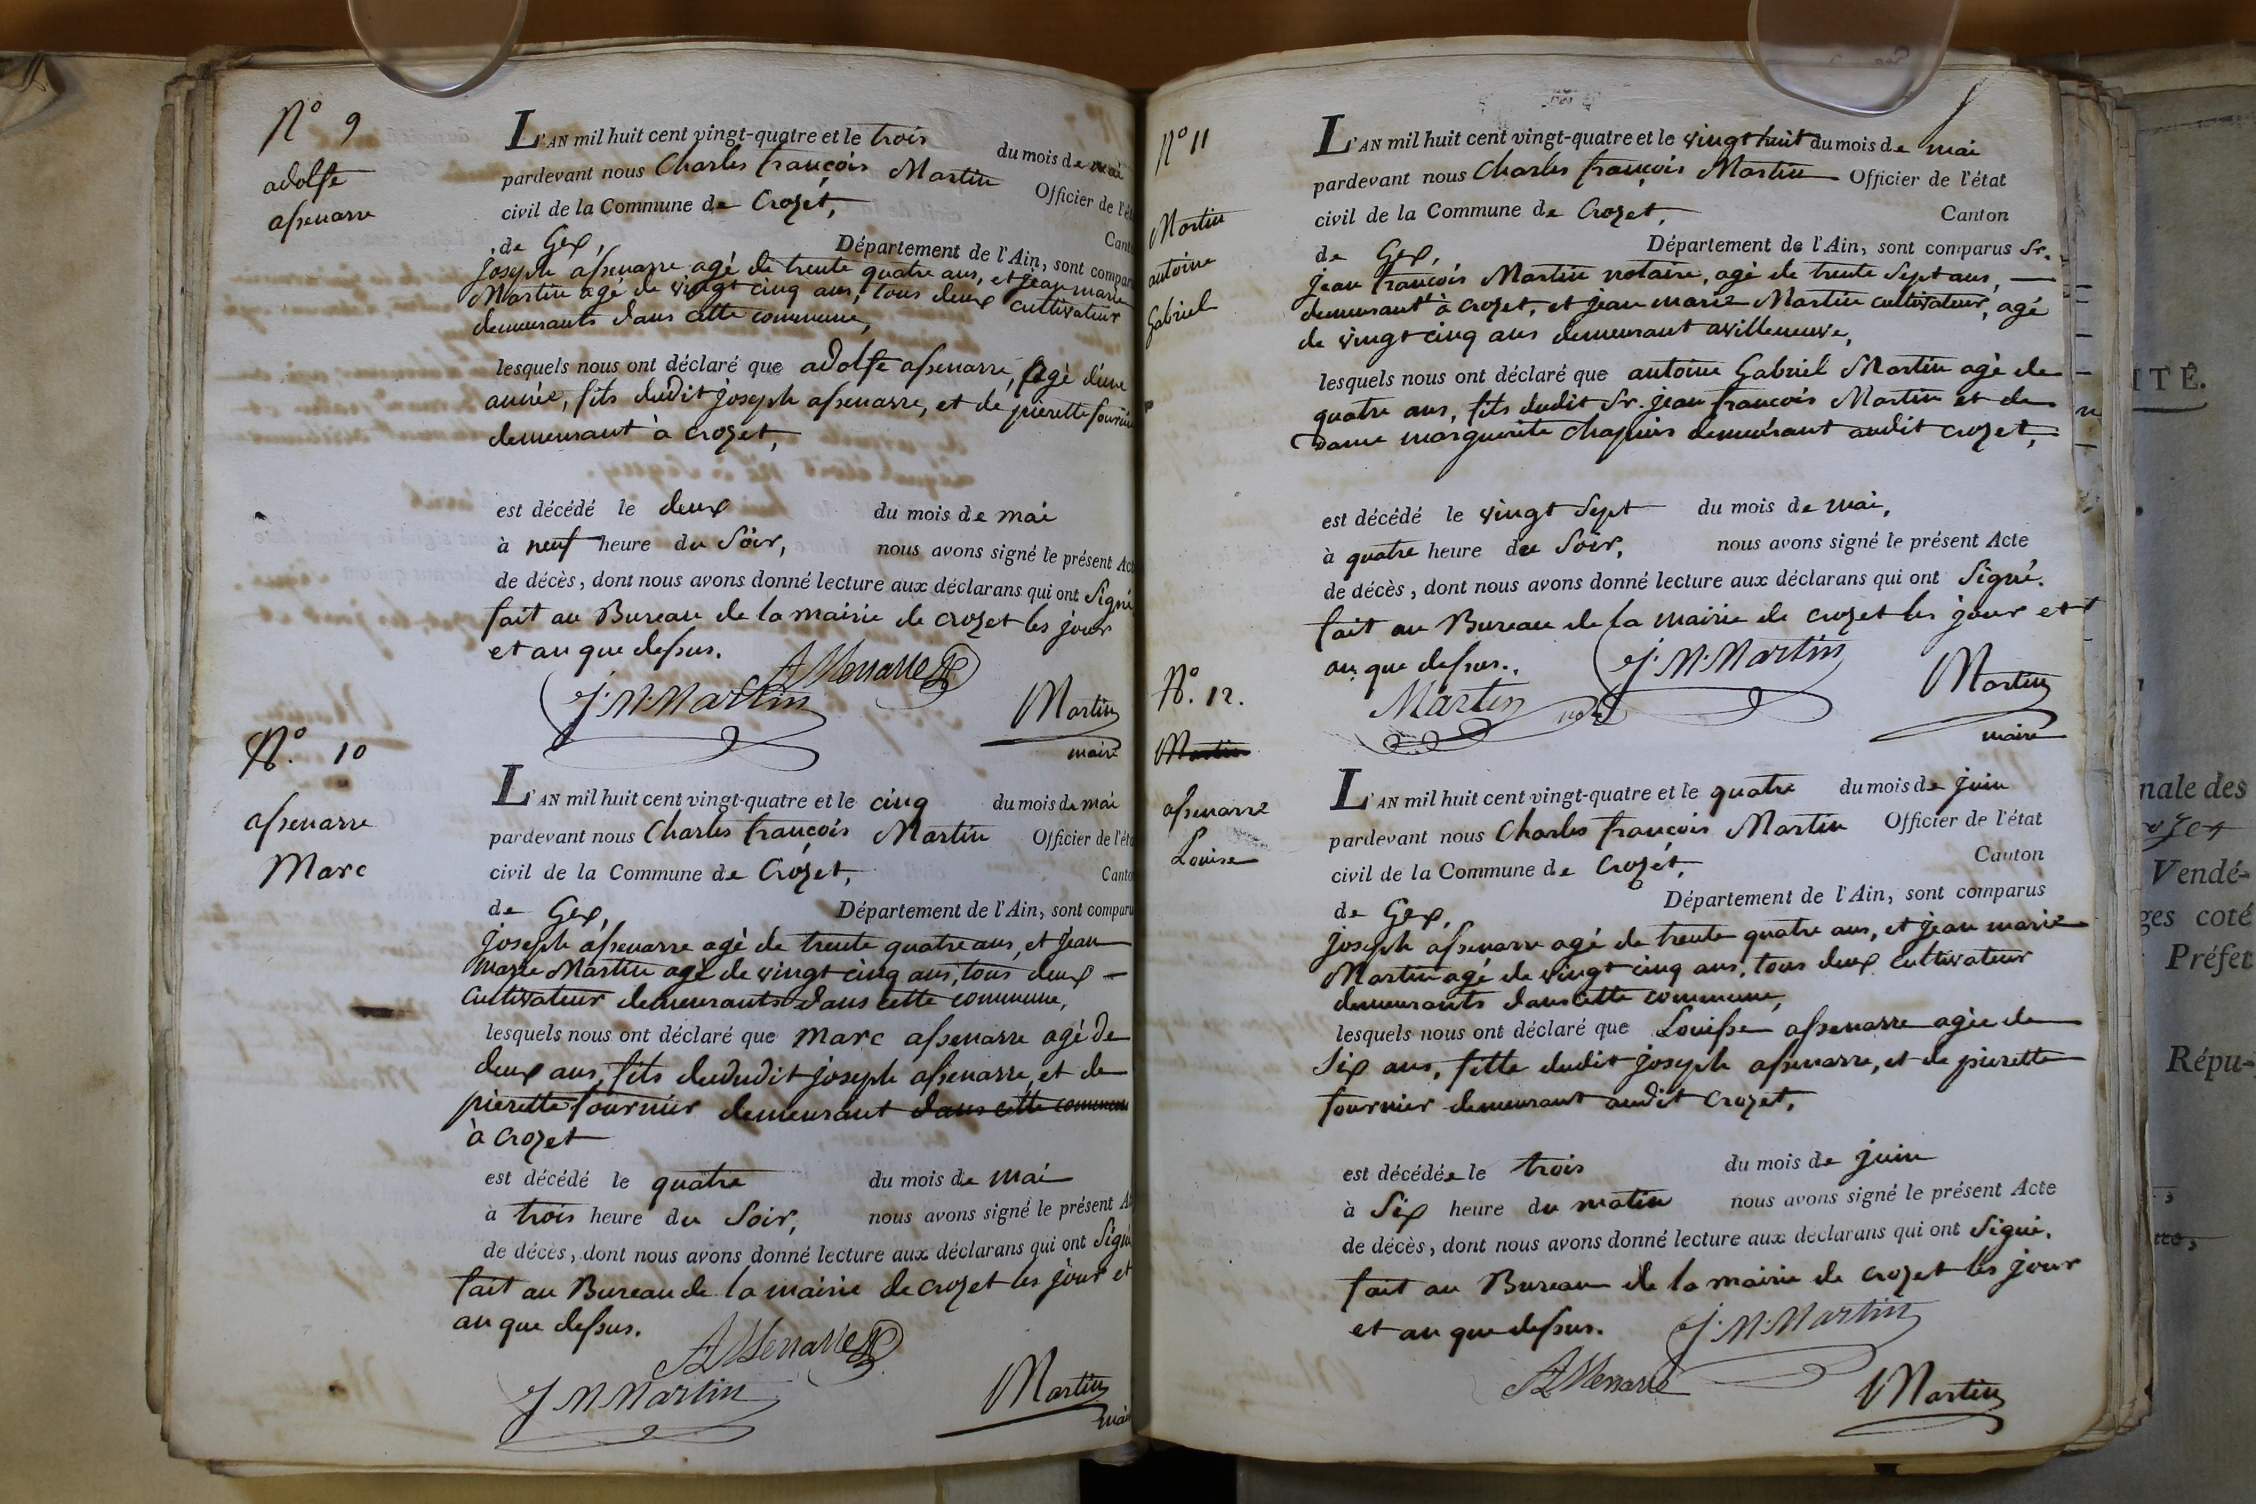 N° 9
adolfe
assenarre
L'AN mil huit cent vingt-quatre et le trois du mois de mai
pardevant nous Charles françois Martin Officier de l'éta
civil de la Commune de Crozet, Cant
de Gex, Département de l'Ain, sont compar
joseph assenarre agé de trente quatre ans, et jean marie
Martin agé de vingt cinq ans, tous deux cultivateur
demeurants dans cette commune,
lesquels nous ont déclaré que adolfe assenarre, agé d'une
année, fils dudit joseph assenarre, et de pierette fournier
demeurant à crozet,
est décédé le deux du mois de mai
à neuf heure du Soir, nous avons signé le présent Act
de décès, dont nous avons donné lecture aux déclarans qui ont Signé
fait au Bureau de la mairie de crozet les jour
et an que dessus.
Assenarre
J. M. Martin
Martin
maire
N°. 10
assenarre
Marc
L'AN mil huit cent vingt-quatre et le cinq du mois de mai
pardevant nous Charles françois Martin Officier de l'éta
civil de la Commune de Crozet, Canto
de Gex, Département de l'Ain, sont comparu
joseph assenarre agé de trente quatre ans, et jean
marie Martin agé de vingt cinq ans, tous deux
cultivateur demeurants dans cette commune,
lesquels nous ont déclaré que Marc assenarre agé de
deux ans, fils dududit joseph assenarre, et de
pierette fournier demeurant dans cette commune
à crozet
est décédé le quatre du mois de mai
à trois heure du Soir, nous avons signé le présent A
de décès, dont nous avons donné lecture aux déclarans qui ont Signé
fait au Bureau de la mairie de crozet les jour et
an que dessus.
Assenarre
J M Martin
Martin
mai
N° 11
Martin
antoine
Gabriel
L'AN mil huit cent vingt-quatre et le vingt huit du mois de mai
pardevant nous Charles françois Martin Officier de l'état
civil de la Commune de Crozet, Canton
de Gex, Département de l'Ain, sont comparus Sr.
jean françois Martin notaire, agé de trente Sept ans,
demeurant à crozet, et jean marie Martin cultivateur, agé
de vingt cinq ans demeurant avilleneuve,
lesquels nous ont déclaré que antoine Gabriel Martin agé de
quatre ans, fils dudit Sr. jean françois Martin et de
Dame marguerite Chapuis demeurant audit crozet,
est décédé le vingt Sept du mois de mai,
à quatre heure du Soir, nous avons signé le présent Acte
de décès, dont nous avons donné lecture aux déclarans qui ont Signé.
fait au Bureau de la mairie de crozet les jour et
an que dessus.
J. M. Martin
Martin
Martin
maire
N°. 12.
Martin
assenarre
Louise
L'AN mil huit cent vingt-quatre et le quatre du mois de juin
pardevant nous Charles françois Martin Officier de l'état
civil de la Commune de Crozet, Canton
de Gex, Département de l'Ain, sont comparus
joseph assenarre agé de trente quatre ans, et jean marie
Martin agé de vingt cinq ans, tous deux cultivateur
demeurants dans cette commune,
lesquels nous ont déclaré que Louisse assenarre agée de
Six ans, fille dudit joseph assenarre, et de pierette
fournier demeurant audit Crozet,
est décédée le trois du mois de juin
à Six heure du matin nous avons signé le présent Acte
de décès, dont nous avons donné lecture aux déclarans qui ont Signé.
fait au Bureau de la mairie de crozet les jour
et an que dessus.
J. M. Martin
Assenarre
Martin
ITÉ.
nale des
Vendé-
ges coté
Préfet
Répu-